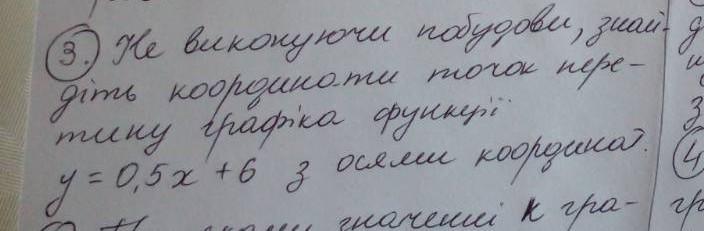 3. Не виконуючи побудови, знай-
діть координати точок пере-
тину графіка функції
y = 0,5x + 6 з осями координат.
4
значенні k гра-